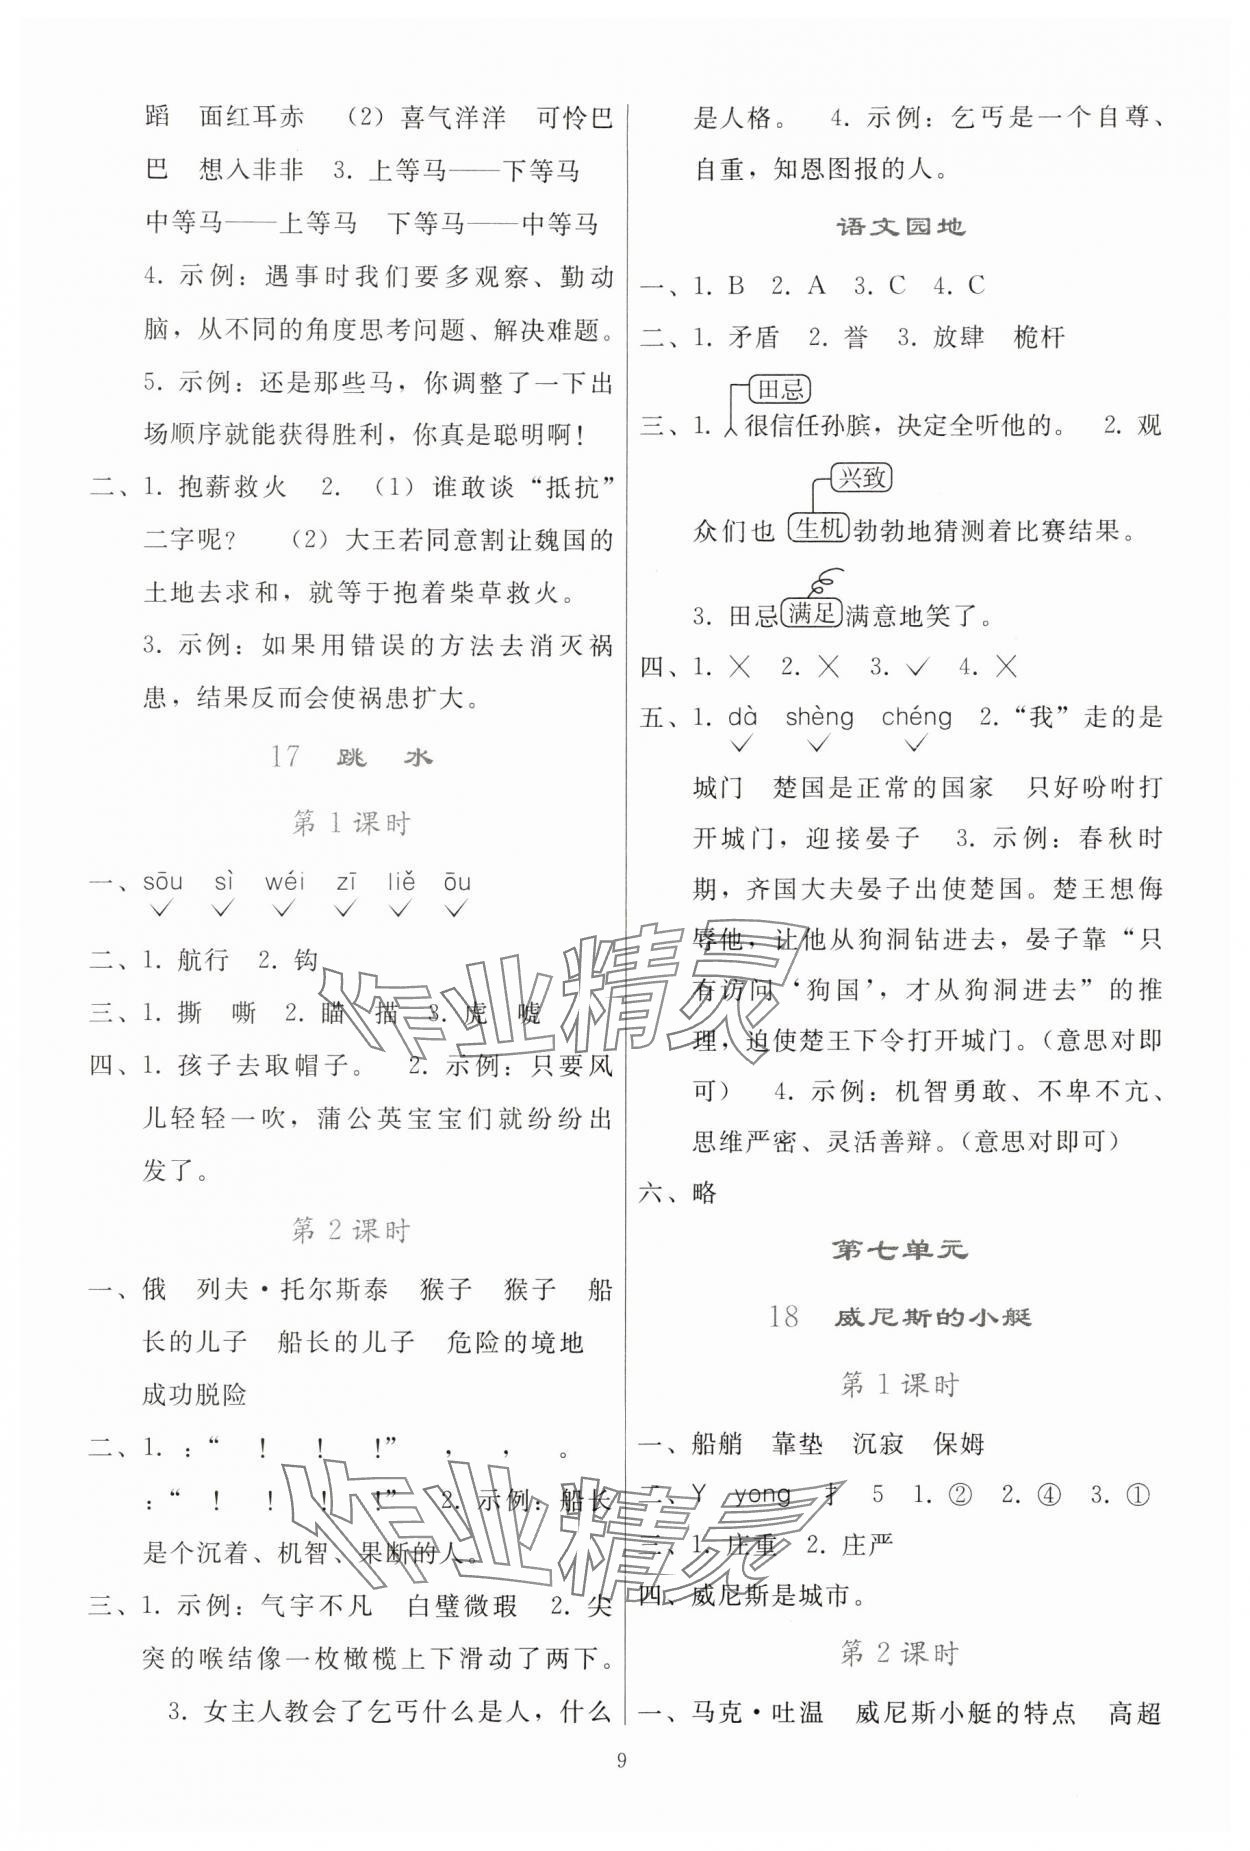 蹈　面红耳赤　（2）喜气洋洋　可怜巴
巴　想入非非　3. 上等马——下等马
中等马——上等马　下等马——中等马
4. 示例：遇事时我们要多观察、勤动
脑，从不同的角度思考问题、解决难题。
5. 示例：还是那些马，你调整了一下出
场顺序就能获得胜利，你真是聪明啊！
二、1. 抱薪救火　2.（1）谁敢谈“抵抗”
二字呢？　（2）大王若同意割让魏国的
土地去求和，就等于抱着柴草救火。
3. 示例：如果用错误的方法去消灭祸
患，结果反而会使祸患扩大。
17　跳　水
第 1 课时
一、sōu　sì　wéi　zī　liě　ōu
✓　✓　✓　✓　✓　✓
二、1. 航行　2. 钩
三、1. 撕　嘶　2. 瞄　描　3. 虎　唬
四、1. 孩子去取帽子。　2. 示例：只要风
儿轻轻一吹，蒲公英宝宝们就纷纷出
发了。
第 2 课时
一、俄　列夫·托尔斯泰　猴子　猴子　船
长的儿子　船长的儿子　危险的境地
成功脱险
二、1. ：“　！　！　！”　，　，　。
：“　！　！　！　！”　2. 示例：船长
是个沉着、机智、果断的人。
三、1. 示例：气宇不凡　白璧微瑕　2. 尖
突的喉结像一枚橄榄上下滑动了两下。
3. 女主人教会了乞丐什么是人，什么
是人格。　4. 示例：乞丐是一个自尊、
自重，知恩图报的人。
语文园地
一、1. B　2. A　3. C　4. C
二、1. 矛盾　2. 誉　3. 放肆　桅杆
田忌
三、1. 很信任孙膑，决定全听他的。　2. 观
兴致
众们也生机勃勃地猜测着比赛结果。
3. 田忌满足满意地笑了。
四、1. ╳　2. ╳　3. ✓　4. ╳
五、1. dà　shèng　chéng　2.“我”走的是
✓　✓　✓
城门　楚国是正常的国家　只好吩咐打
开城门，迎接晏子　3. 示例：春秋时
期，齐国大夫晏子出使楚国。楚王想侮
辱他，让他从狗洞钻进去，晏子靠“只
有访问‘狗国’，才从狗洞进去”的推
理，迫使楚王下令打开城门。（意思对即
可）　4. 示例：机智勇敢、不卑不亢、
思维严密、灵活善辩。（意思对即可）
六、略
第七单元
18　威尼斯的小艇
第 1 课时
一、船艄　靠垫　沉寂　保姆
二、Y　yong　扌　5　1. ②　2. ④　3. ①
三、1. 庄重　2. 庄严
四、威尼斯是城市。
第 2 课时
一、马克·吐温　威尼斯小艇的特点　高超
9
作业精灵
作业精灵